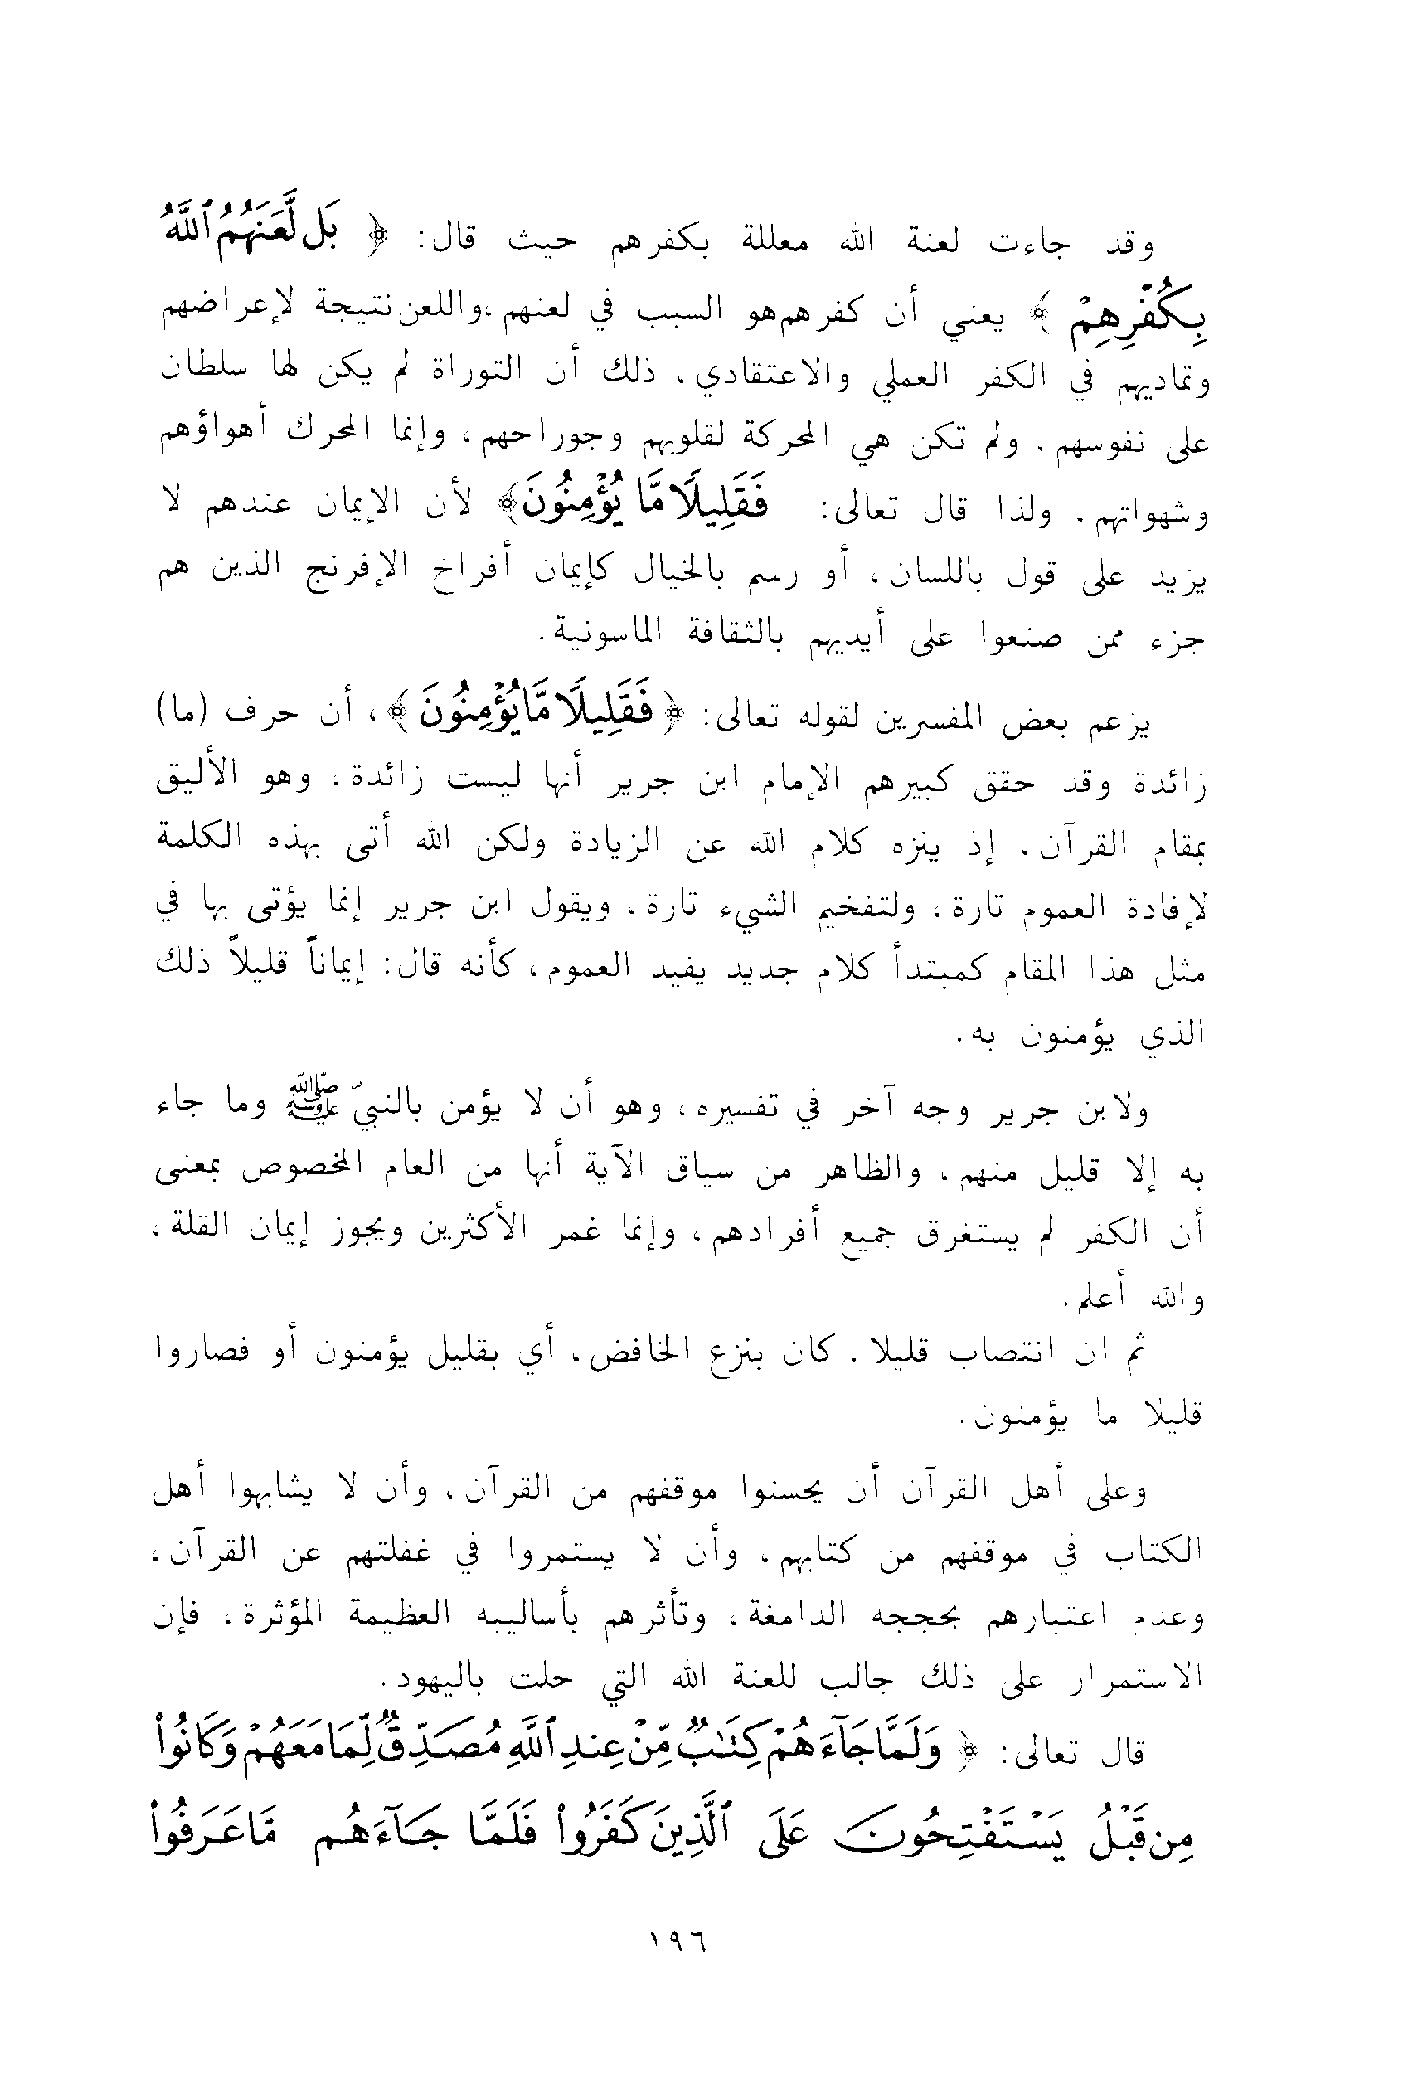 وقد جاءت لعنة الله معللة بكفرهم حيث قال: ﴿ بَل لَّعَنَهُمُ ٱللَّهُ
بِكُفْرِهِمْ ﴾ يعني أن كفرهم هو السبب في لعنهم، واللعن نتيجة لإعراضهم
وتماديهم في الكفر العملي والاعتقادي، ذلك أن التوراة لم يكن لها سلطان
على نفوسهم. ولم تكن هي المحركة لقلوبهم وجوراحهم، وإنما المحرك أهواؤهم
وشهواتهم. ولذا قال تعالى: فَقَلِيلًا مَّا يُؤْمِنُونَ﴾ لأن الإيمان عندهم لا
يزيد على قول باللسان، أو رسم بالخيال كإيمان أفراخ الإفرنج الذين هم
جزء ممن صنعوا على أيديهم بالثقافة الماسونية.
يزعم بعض المفسرين لقوله تعالى: ﴿ فَقَلِيلًا مَّا يُؤْمِنُونَ ﴾، أن حرف (ما)
زائدة وقد حقق كبيرهم الإمام ابن جرير أنها ليست زائدة، وهو الأليق
بمقام القرآن، إذ ينزه كلام الله عن الزيادة ولكن الله أتى بهذه الكلمة
لإفادة العموم تارة، ولتفخيم الشيء تارة، ويقول ابن جرير إنما يؤتى بها في
مثل هذا المقام كمبتدأ كلام جديد يفيد العموم، كأنه قال: إيماناً قليلاً ذلك
الذي يؤمنون به.
ولابن جرير وجه آخر في تفسيره، وهو أن لا يؤمن بالنبيّ ﷺ وما جاء
به إلا قليل منهم، والظاهر من سياق الآية أنها من العام المخصوص بمعنى
أن الكفر لم يستغرق جميع أفرادهم، وإنما غمر الأكثرين ويجوز إيمان القلة،
والله أعلم.
ثم ان انتصاب قليلا. كان بنزع الخافض، أي بقليل يؤمنون أو فصاروا
قليلا ما يؤمنون.
وعلى أهل القرآن أن يحسنوا موقفهم من القرآن، وأن لا يشابهوا أهل
الكتاب في موقفهم من كتابهم، وأن لا يستمروا في غفلتهم عن القرآن،
وعدم اعتبارهم بحججه الدامغة، وتأثرهم بأساليبه العظيمة المؤثرة، فإن
الاستمرار على ذلك جالب للعنة الله التي حلت باليهود.
قال تعالى: ﴿ وَلَمَّا جَآءَهُمْ كِتَٰبٌ مِّنْ عِندِ ٱللَّهِ مُصَدِّقٌ لِّمَا مَعَهُمْ وَكَانُوا۟
مِن قَبْلُ يَسْتَفْتِحُونَ عَلَى ٱلَّذِينَ كَفَرُوا۟ فَلَمَّا جَآءَهُم مَّا عَرَفُوا۟
١٩٦